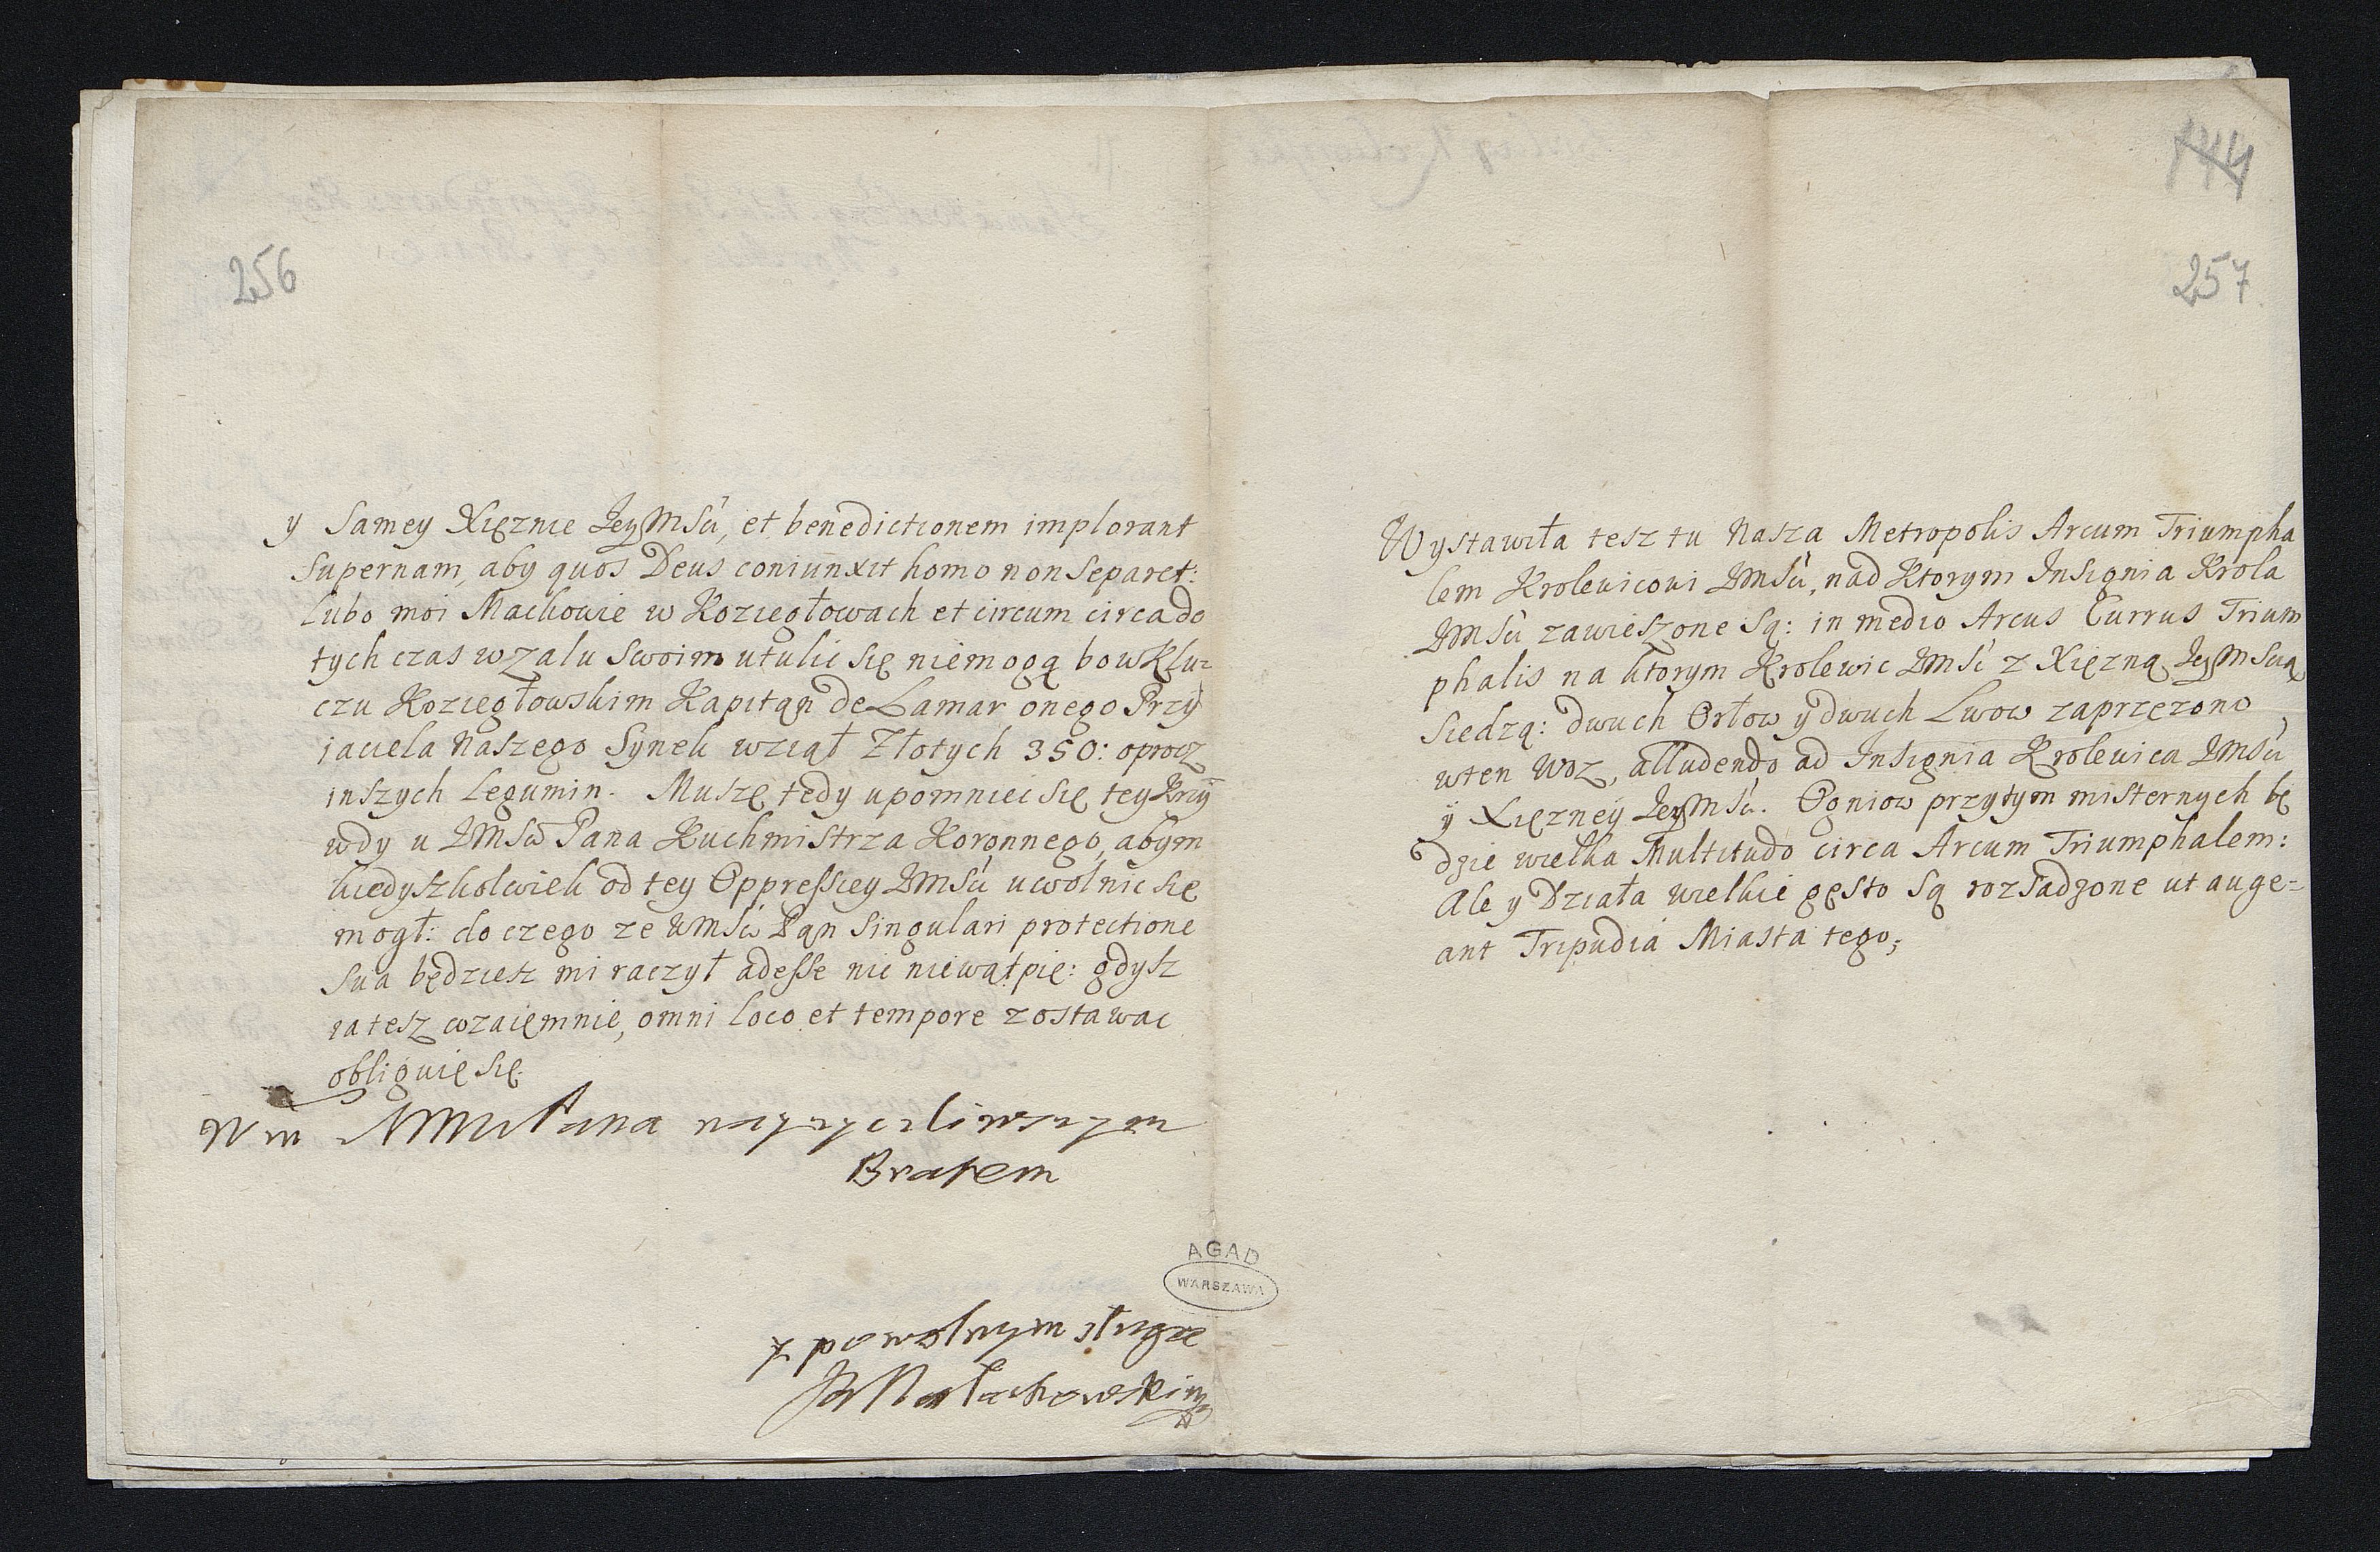 256
y Samey Xięznie JeyMSci, et benedictionem implorant
Supernam, aby quos Deus coniunxit homo non Separet:
Lubo moi Mackowie w Koziegłowach et circum circa do
tych czas w zalu Swoim utulic się niemogą bo w Klu-
czu Koziegłowskim Kapitan de Lamar onego Przy
iaciela Naszego Synek wziął Złotych 350: oprocz
inszych Legumin. Muszę tedy upomniec się tey Krzy
wdy u JMSci Pana Kuchmistrza Koronnego, abym
kiedyszkolwiek od tey Oppressiey JMSci uwolnic się
mogł: do czego ze WMSci Pan Singulari protectione
Sua będziesz mi raczył adesse nic niewątpię: gdysz
ia tesz wzaięmnie, omni loco et tempore zostawac
obliguię się.
Wm MMM Pana nayzyczliwszym
Bratem
AGAD
WARSZAWA
y powolnym sługą
JMałachowskim
144
257
Wystawiła tesz tu Nasza Metropolis Arcum Triumpha
lem Krolewicowi JMSci, nad Ktorym Insignia Krola
JMSci zawieszone Są: in medio Arcus Currus Trium
phalis na ktorym Krolewic JMSc z Xięzną JeyMScią
Siedzą: dwuch Orłow y dwuch Lwow zaprzęzono
w ten Woz, alludendo ad Insignia Krolewica JMSci
y Xięzney JeyMSci. Ogniow przytym misternych bę
dzie wielka Multitudo circa Arcum Triumphalem:
Ale y Działa wielkie gęsto Są rozsadzone ut auge=
ant Tripudia Miasta tego;